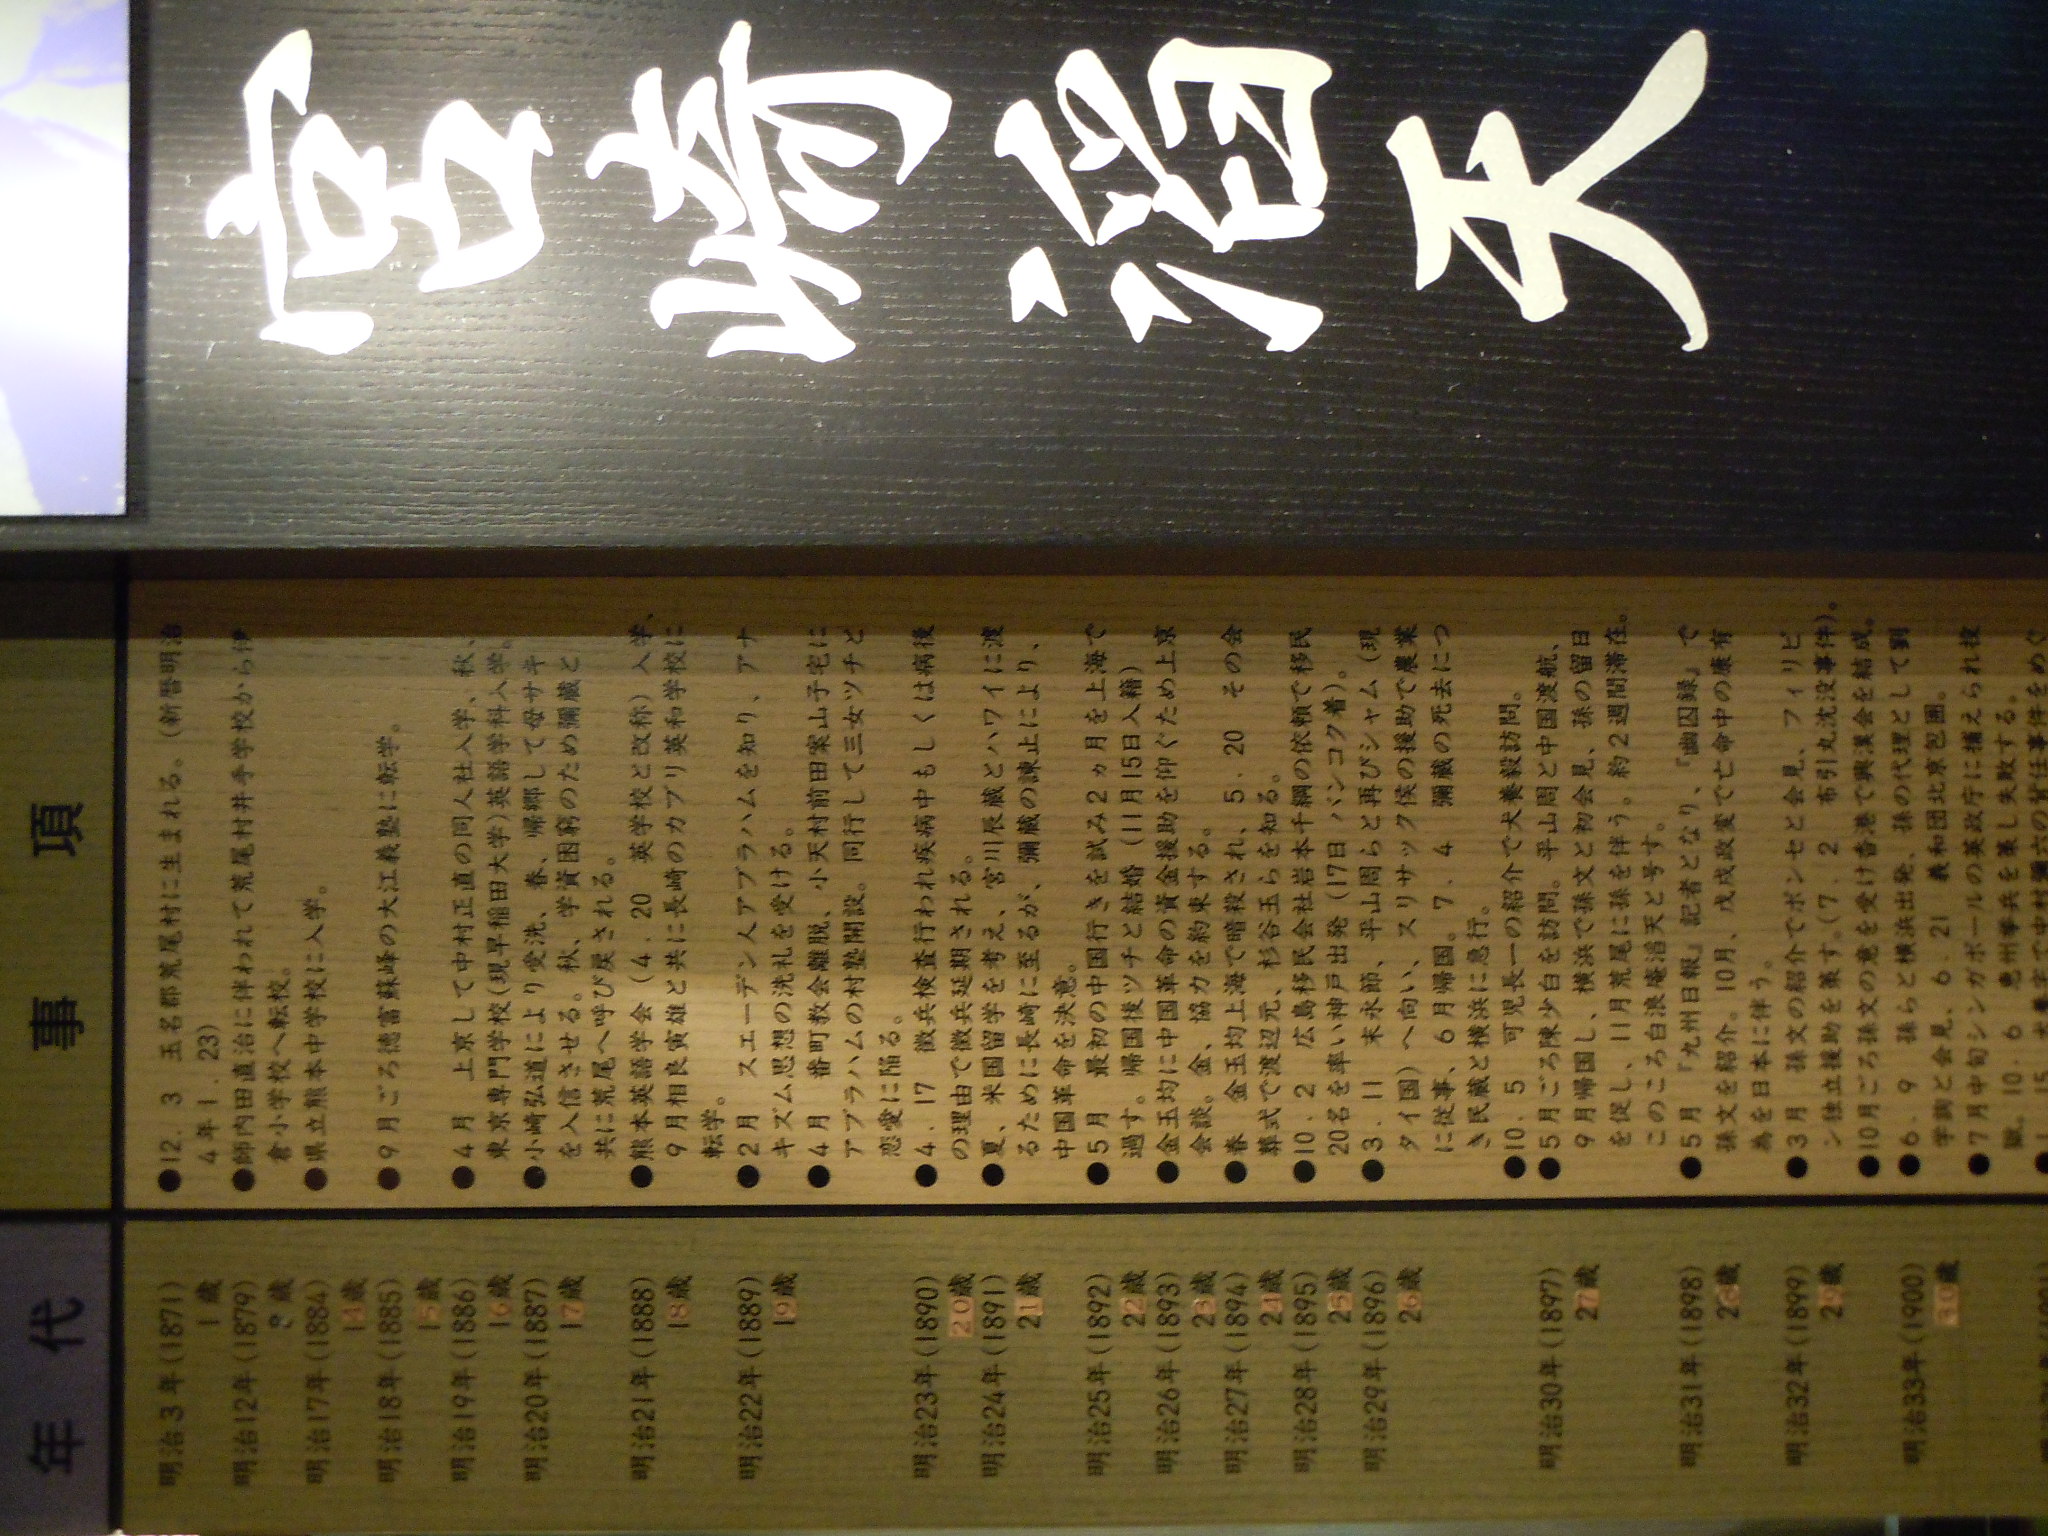 宮崎滔天
年代
事項
明治3年(1871)
1歳
●12．3　玉名郡荒尾村に生まれる。(新暦明治
4年1．23)
明治12年(1879)
歳
●師内田直治に伴われて荒尾村井手学校から伊
倉小学校へ転校。
明治17年(1884)
14歳
●県立熊本中学校に入学。
明治18年(1885)
15歳
●9月ごろ徳富蘇峰の大江義塾に転学。
明治19年(1886)
16歳
●4月　上京して中村正直の同人社入学、秋、
東京専門学校(現早稲田大学)英語学科入学。
明治20年(1887)
17歳
●小崎弘道により受洗、春、帰郷して母サキ
を入信させる。秋、学資困窮のため彌蔵と
共に荒尾へ呼び戻される。
明治21年(1888)
18歳
●熊本英語学会（4．20　英学校と改称）入学、
9月相良寅雄と共に長崎のカブリ英和学校に
転学。
明治22年(1889)
19歳
●2月　スエーデン人アブラハムを知り、アナ
キズム思想の洗礼を受ける。
●4月　番町教会離脱、小天村前田案山子宅に
アブラハムの村塾開設。同行して三女ツチと
恋愛に陥る。
明治23年(1890)
20歳
●4．17　徴兵検査行われ疾病中もしくは病後
の理由で徴兵延期される。
明治24年(1891)
21歳
●夏、米国留学を考え、宮川辰蔵とハワイに渡
るために長崎に至るが、彌蔵の諫止により、
中国革命を決意。
明治25年(1892)
22歳
●5月　最初の中国行きを試み2ヵ月を上海で
過す。帰国後ツチと結婚（11月15日入籍）
明治26年(1893)
23歳
●金玉均に中国革命の資金援助を仰ぐため上京
会談。　金、協力を約束する。
明治27年(1894)
24歳
●春　金玉均上海で暗殺され、5．20　その会
葬式で渡辺元、杉谷玉らを知る。
明治28年(1895)
25歳
●10．2　広島移民会社岩本千綱の依頼で移民
20名を率い神戸出発（17日 バンコク着)。
明治29年(1896)
26歳
●3．11　末永節、平山周らと再びシャム（現
タイ国）へ向い、スリサック侯の援助で農業
に従事、6月帰国。7．4　彌蔵の死去につ
き民蔵と横浜に急行。
明治30年(1897)
27歳
●10．5　可児長一の紹介で犬養毅訪問。
●5月ごろ陳少白を訪問。平山周と中国渡航、
9月帰国し、横浜で孫文と初会見、孫の留日
を促し、11月荒尾に孫を伴う。約2週間滞在。
このころ白浪庵滔天と号す。
明治31年(1898)
28歳
●5月　『九州日報』記者となり、『幽囚録』で
孫文を紹介。10月、戊戌政変で亡命中の康有
為を日本に伴う。
明治32年(1899)
29歳
●3月　孫文の紹介でポンセと会見、フィリピ
ン独立援助を策す。(7．2　布引丸沈没事件)。
●10月ごろ孫文の意を受け香港で興漢会を結成。
明治33年(1900)
30歳
●6．9　孫らと横浜出発、孫の代理として劉
学詢と会見、6．21　義和団北京包囲。
●7月中旬シンガポールの英政庁に捕えられ投
獄。10．6　恵州挙兵を策し失敗する。
●1．15　犬養宅で中村彌六の背任事件をめぐ